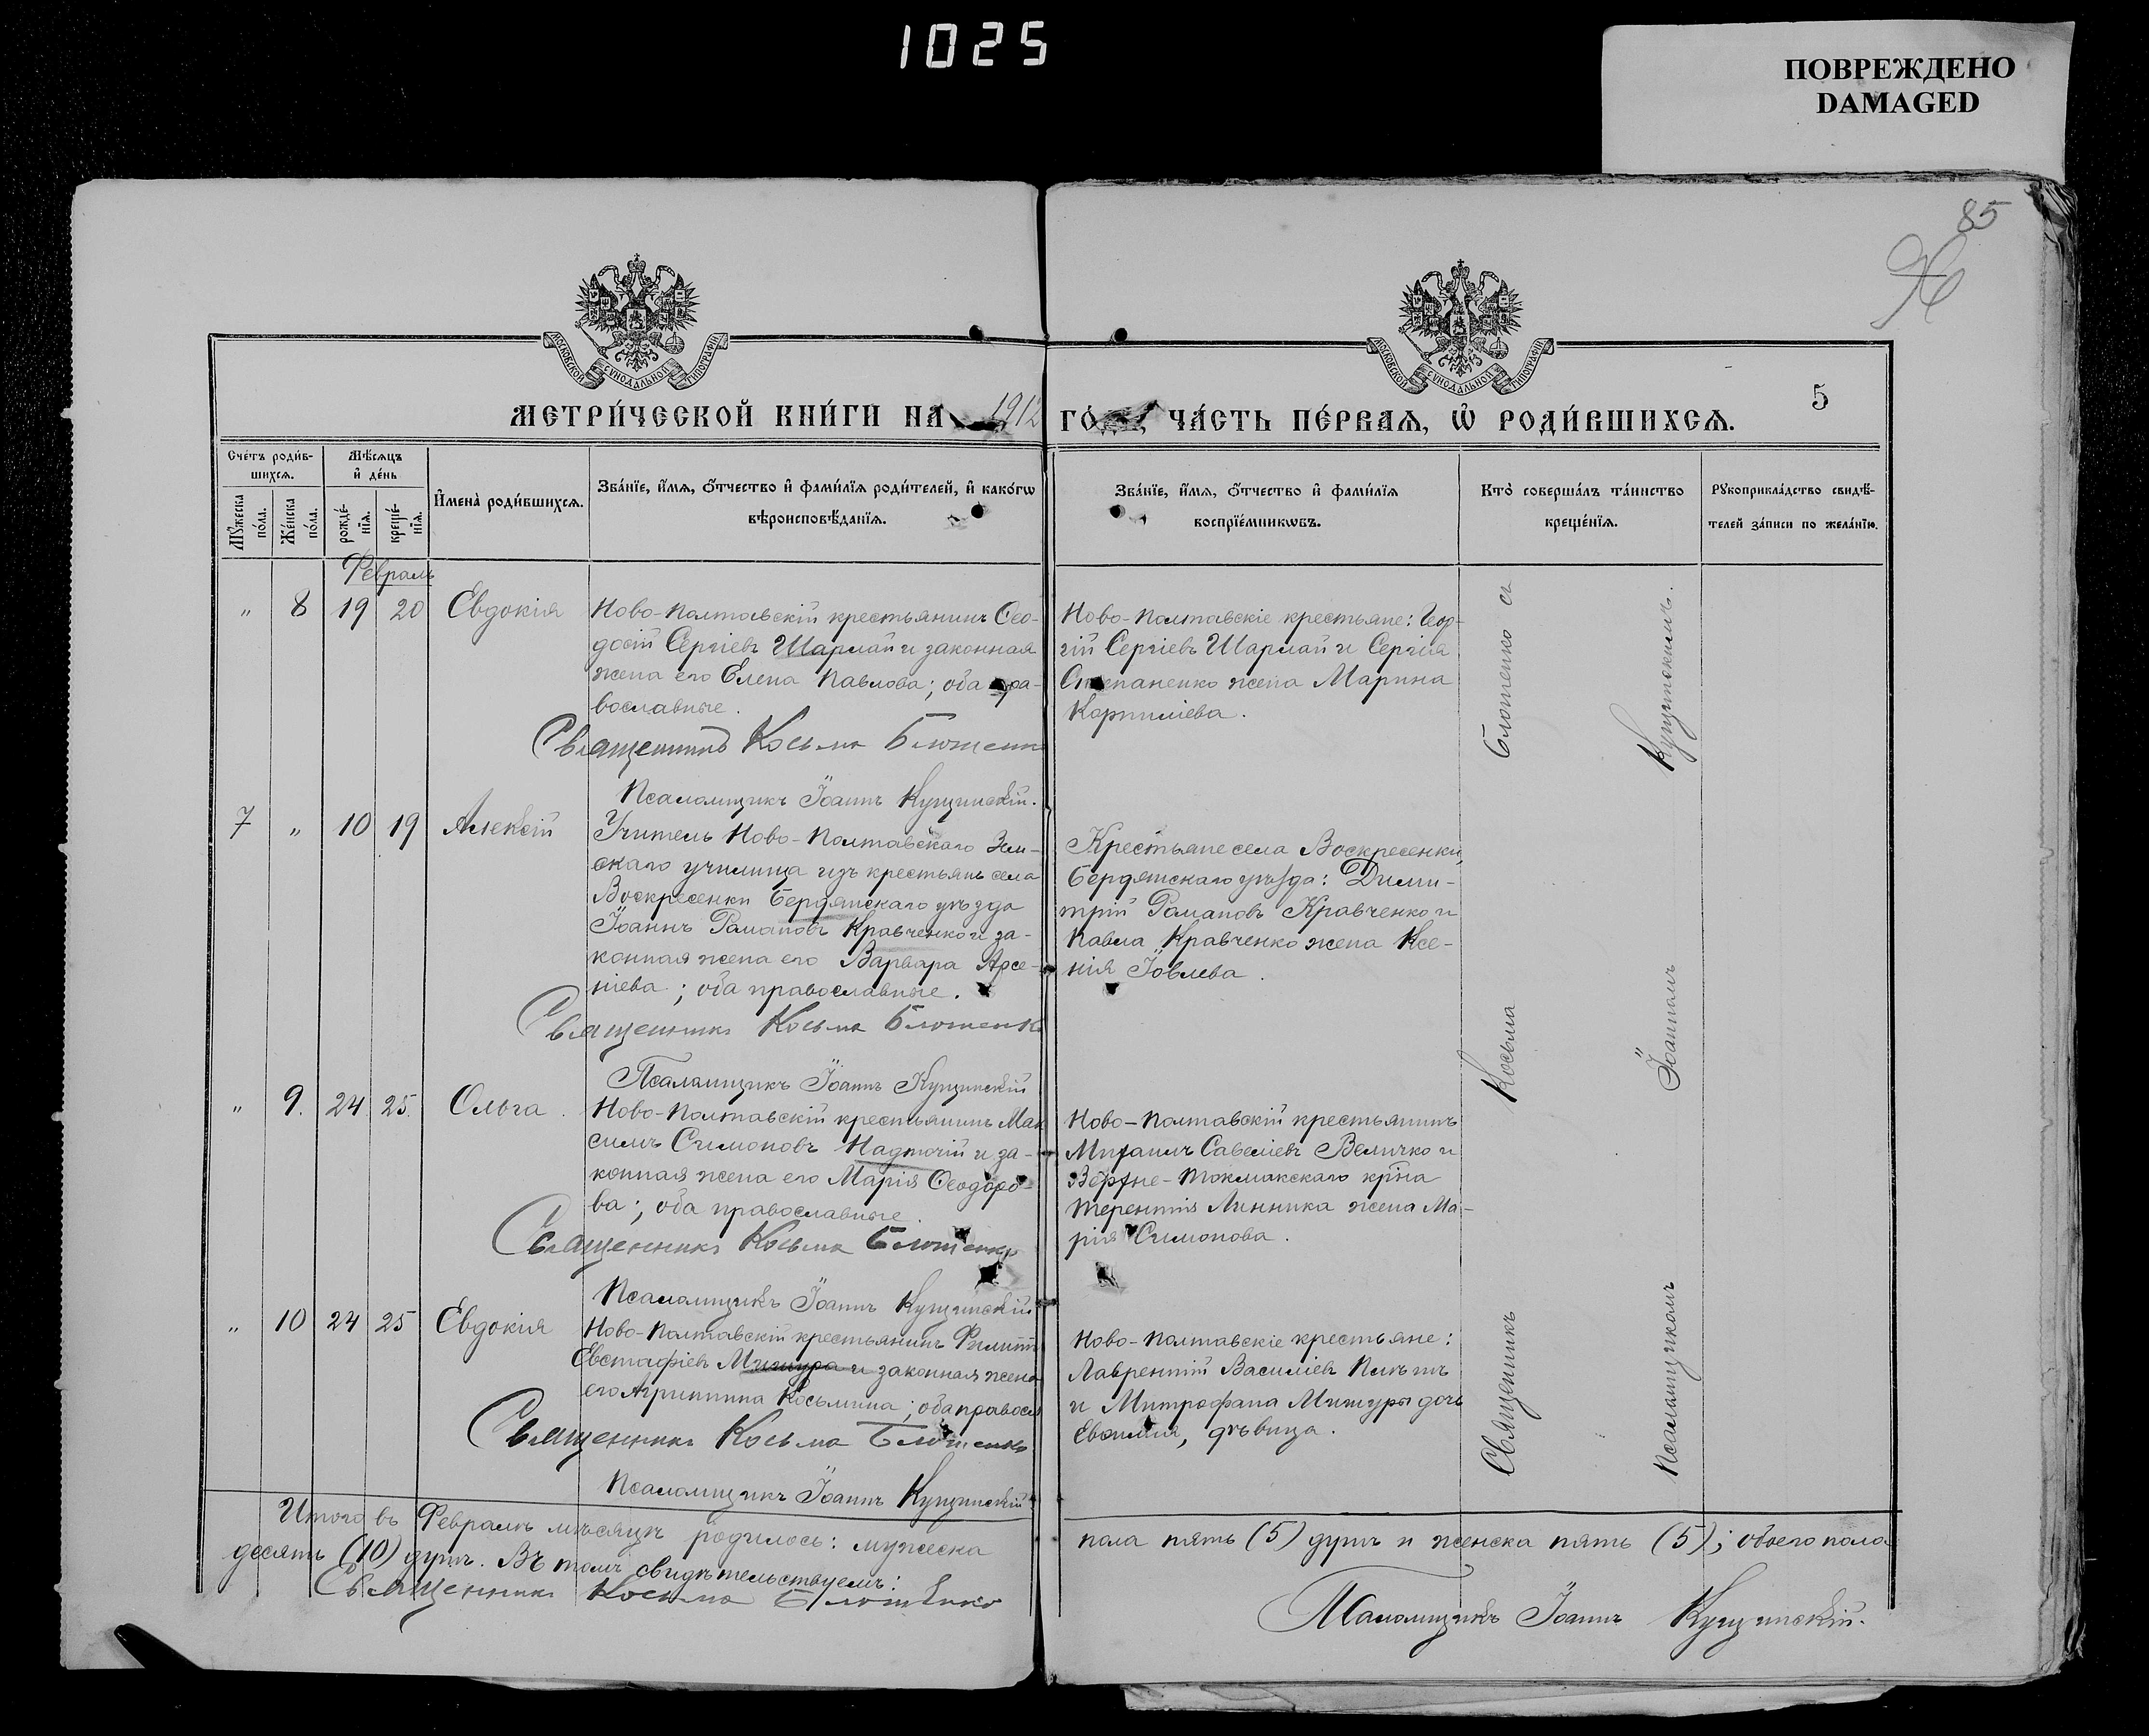 1025
ПОВРЕЖДЕНО
DAMAGED
85
96
МОСКОВСКОЙ СѴНОДАЛЬНОЙ ТИПОГРАФІИ
МОСКОВСКОЙ СѴНОДАЛЬНОЙ ТИПОГРАФІИ
5
МЕТРИ́ЧЕСКОЙ КНИ́ГИ НА 1912 ГО́ ЧА́СТЬ ПЕ́РВАЯ, Ѡ҆ РОДИ́ВШИХСЯ.
Сче́тъ роди́в-
шихся.
Мѣ́сяцъ
и҆ де́нь
Мꙋ́жеска по́ла.
Же́нска по́ла.
рожде́-нїя.
креще́-нїя.
И҆мена̀ роди́вшихся.
Зва́нїе, и҆́мя, ѻ҆́тчество и҆ фами́лїя роди́телей, и҆ како́гѡ
вѣроисповѣ́данїя.
Зва́нїе, и҆́мя, ѻ҆́тчество и҆ фами́лїя
воспрїе́мникѡвъ.
Кто̀ соверша́лъ та́инство
креще́нїя.
Рꙋкоприкла́дство свидѣ́-
телей за́писи по жела́нїю.
Февраль
" 8 19 20 Евдокія
Ново-Полтавскій крестьянинъ Ѳео-
досій Сергіевъ Шармай и законная
жена его Елена Павлова; оба пра-
вославные.
Священникъ Косьма Блошенк
Псаломщикъ Іоаннъ Кущинскій.
Ново-Полтавскіе крестьяне: Геор-
гій Сергіевъ Шармай и Сергія
Степаненко жена Марина
Корниліева.
7 " 10 19 Алексій
Учитель Ново-Полтавскаго Зем-
скаго училища изъ крестьянъ села
Воскресенки Бердянскаго уѣзда
Іоаннъ Романовъ Кравченко и за-
конная жена его Варвара Арсе-
ніева; оба православные.
Священникъ Косьма Блошенк
Псаломщикъ Іоаннъ Кущинскій
Крестьяне села Воскресенки,
Бердянскаго уѣзда: Дими-
трій Романовъ Кравченко и
Павла Кравченко жена Ксе-
нія Іовлева.
" 9. 24 25. Ольга.
Ново-Полтавскій крестьянинъ Мак
симъ Симоновъ Надточій и за-
конная жена его Марія Ѳеодоро-
ва; оба православные.
Священникъ Косьма Блошенко
Псаломщикъ Іоаннъ Кущинскій
Ново-Полтавскій крестьянинъ
Михаилъ Савеліевъ Величко и
Верхне-Токмакскаго кр-на
Терентія Линника жена Ма-
рія Симонова.
" 10 24 25 Евдокія
Ново-Полтавскій крестьянинъ Филиппъ
Евстафіевъ Мишура и законная жена
его Агриппина Косьмина; оба правосл
Священникъ Косьма Блошенко
Псаломщикъ Іоаннъ Кущинскій
Ново-Полтавскіе крестьяне:
Лаврентій Василіевъ
и Митрофана Мишуры дочь
Евѳимія, дѣвица.
Священникъ Косьма Блошенко съ
Псаломщикомъ Іоанномъ Кущинскимъ.
Итого въ Февралѣ мѣсяцѣ родилось: мужеска пола пять (5) душъ и женска пять (5); обоего пола
десять (10) душъ. Въ томъ свидѣтельствуемъ:
Священникъ Косьма Блошенко
Псаломщикъ Іоаннъ Кущинскій.